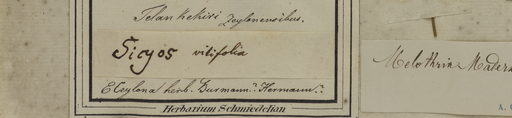 Telankekiri Zeylonensibus.
Sicyos vitifolia
E Ceylona herb. Burmann. Hermann.
Herbarium Schmiedelian
Melothria Madera
A.